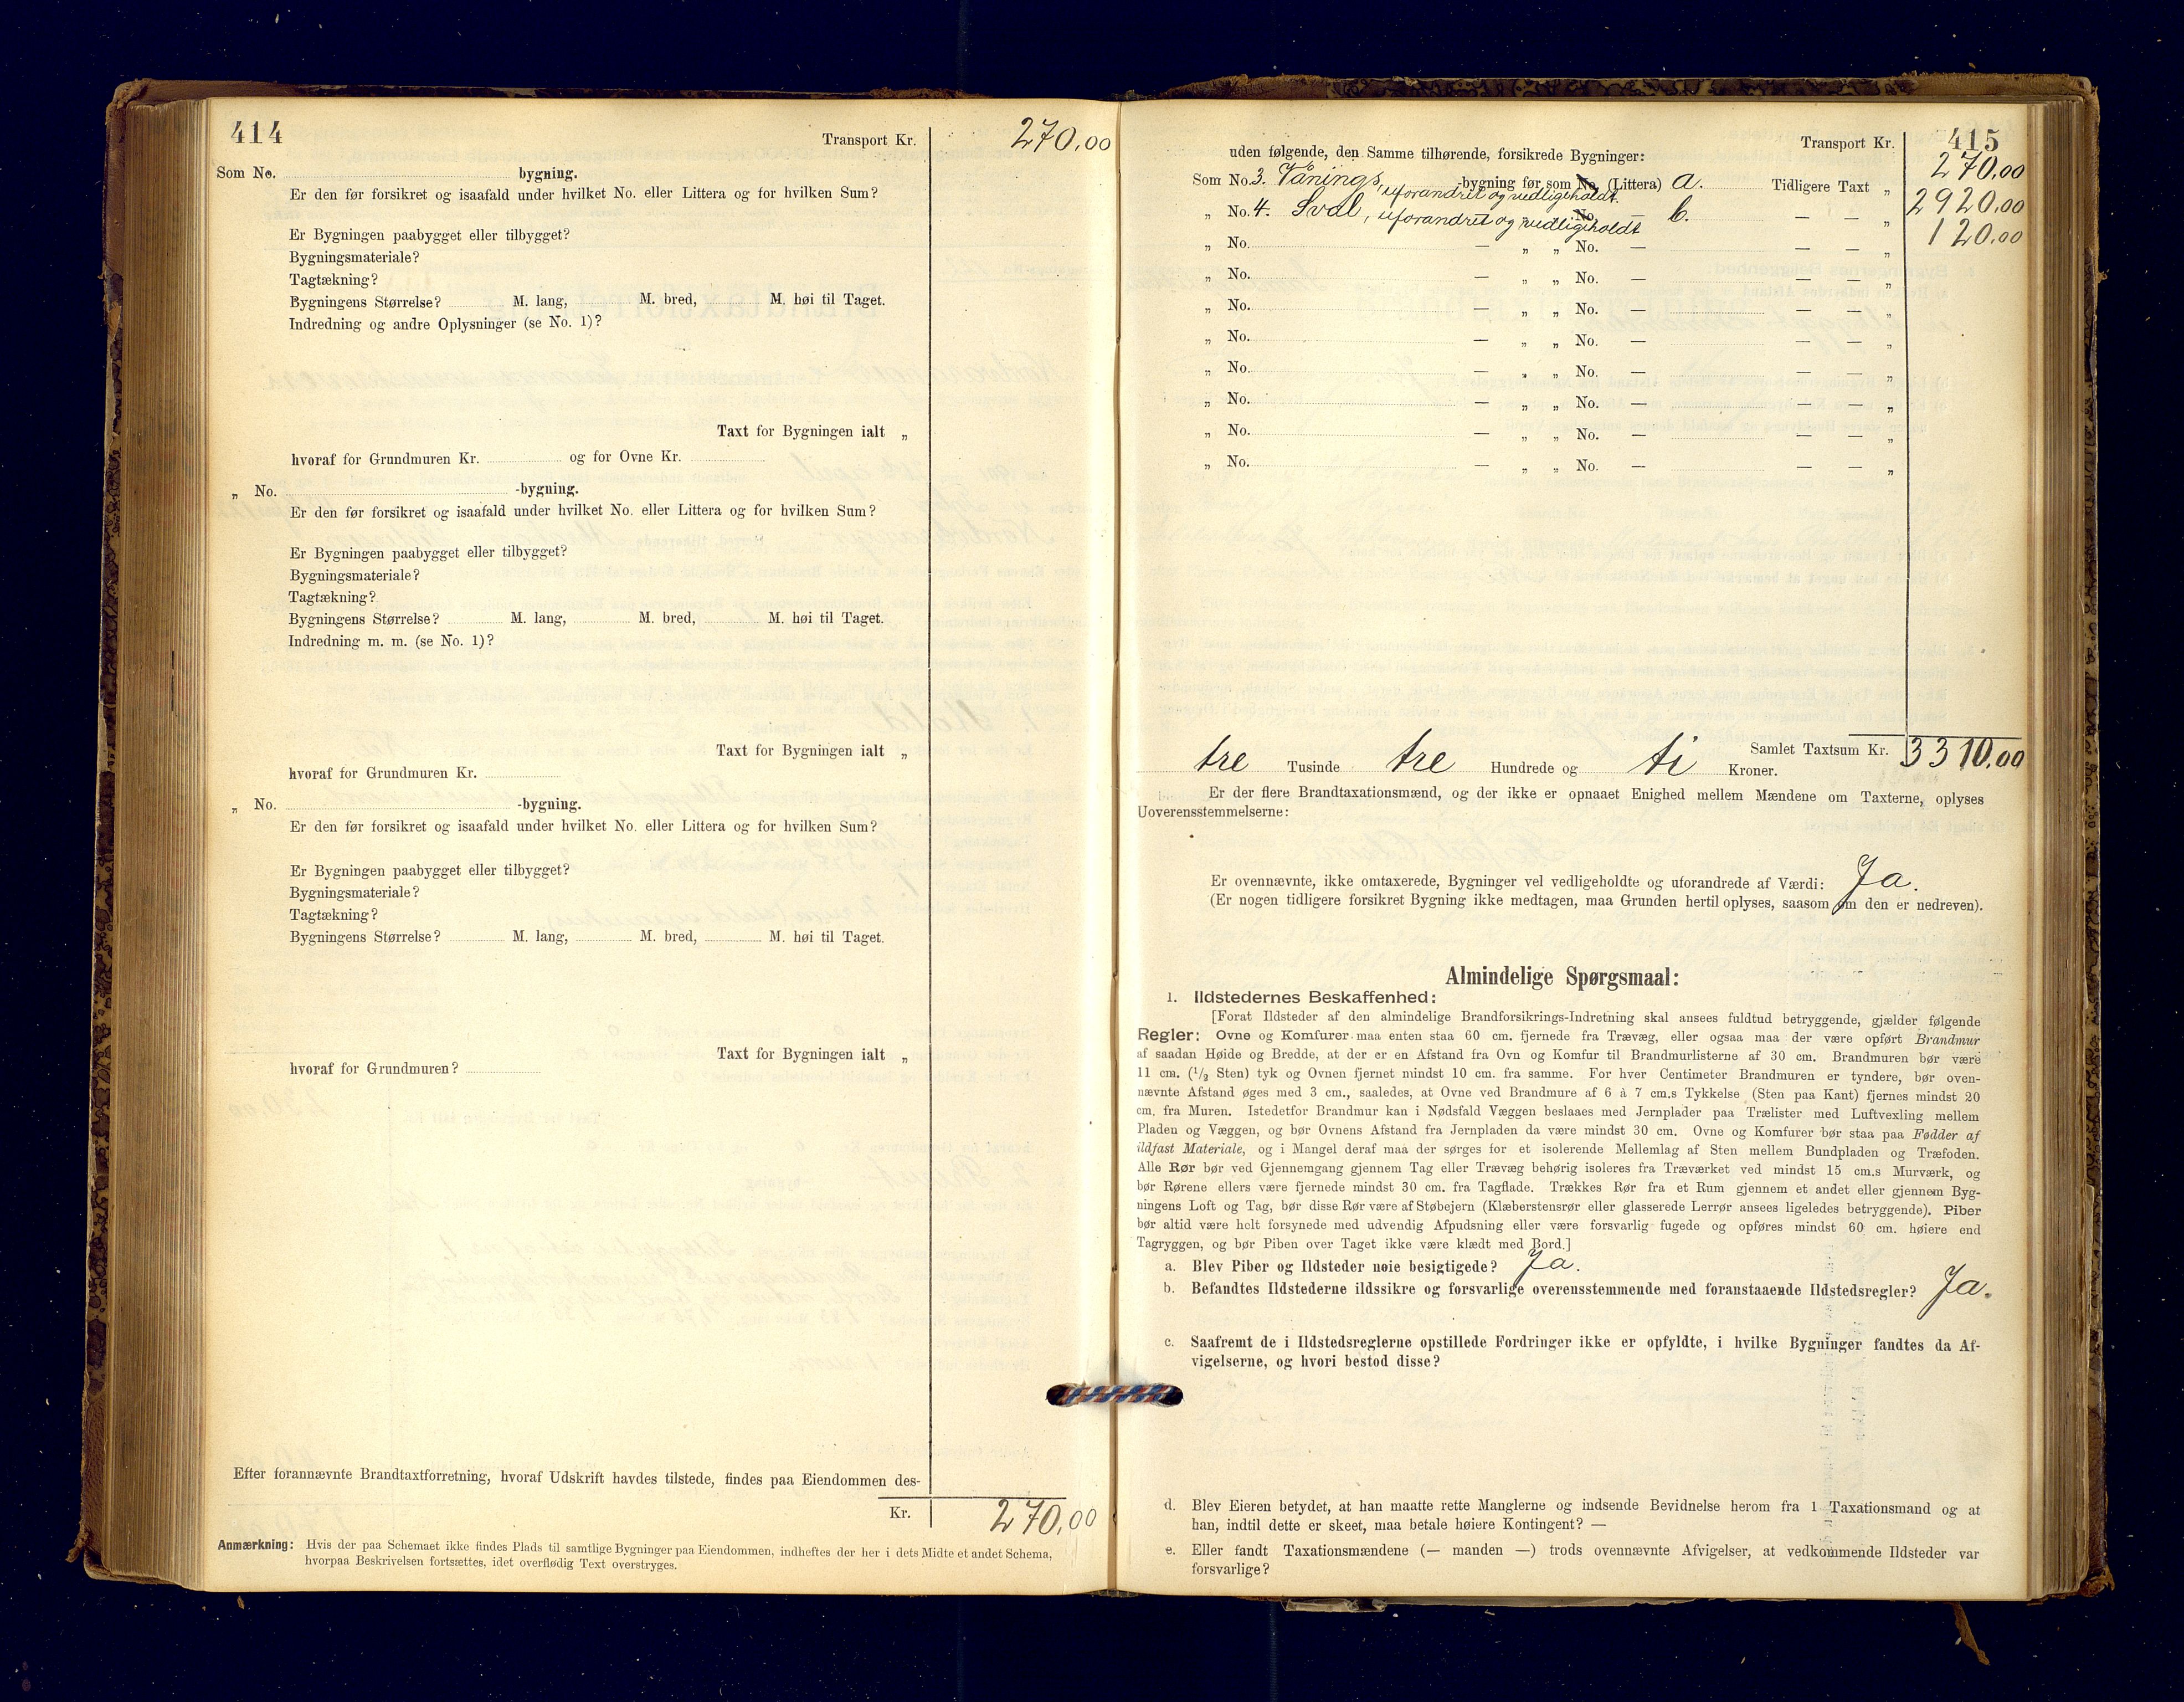 414
Transport Kr. 270,00
Som No. bygning.
Er den før forsikret og isaafald under hvilket No. eller Littera og for hvilken Sum?
Er Bygningen paabygget eller tilbygget?
Bygningsmateriale?
Tagtækning?
Bygningens Størrelse? M. lang, M. bred, M. høi til Taget.
Indredning og andre Oplysninger (se No. 1)?
Taxt for Bygningen ialt „
hvoraf for Grundmuren Kr. og for Ovne Kr.
„ No. -bygning.
Er den før forsikret og isaafald under hvilket No. eller Littera og for hvilken Sum?
Er Bygningen paabygget eller tilbygget?
Bygningsmateriale?
Tagtækning?
Bygningens Størrelse? M. lang, M. bred, M. høi til Taget.
Indredning m. m. (se No. 1)?
Taxt for Bygningen ialt „
hvoraf for Grundmuren Kr.
„ No. -bygning.
Er den før forsikret og isaafald under hvilket No. eller Littera og for hvilken Sum?
Er Bygningen paabygget eller tilbygget?
Bygningsmateriale?
Tagtækning?
Bygningens Størrelse? M. lang, M. bred, M. høi til Taget.
Taxt for Bygningen ialt „
hvoraf for Grundmuren?
Efter forannævnte Brandtaxtforretning, hvoraf Udskrift havdes tilstede, findes paa Eiendommen des-
Kr. 270,00
Anmærkning: Hvis der paa Schemaet ikke findes Plads til samtlige Bygninger paa Eiendommen, indheftes der her i dets Midte et andet Schema,
hvorpaa Beskrivelsen fortsættes, idet overflødig Text overstryges.
415
Transport Kr. 270,00
uden følgende, den Samme tilhørende, forsikrede Bygninger:
Som No. 3. Vånings, uforandret og vedligeholdt. -bygning før som No. (Littera) a. Tidligere Taxt „ 2920,00
„ No. 4. Sval, uforandret og vedligeholdt No. — b. — — „ 120,00
„ No. — „ „ No. — — — „
„ No. — „ „ No. — — — „
„ No. — „ „ No. — — — „
„ No. — „ „ No. — — — „
„ No. — „ „ No. — — — „
„ No. — „ „ No. — — — „
„ No. — „ „ No. — — — „
„ No. — „ „ No. — — — „
Samlet Taxtsum Kr. 3310,00
tre Tusinde tre Hundrede og ti Kroner.
Er der flere Brandtaxationsmænd, og der ikke er opnaaet Enighed mellem Mændene om Taxterne, oplyses
Uoverensstemmelserne:
Er ovennævnte, ikke omtaxerede, Bygninger vel vedligeholdte og uforandrede af Værdi: Ja.
(Er nogen tidligere forsikret Bygning ikke medtagen, maa Grunden hertil oplyses, saasom om den er nedreven).
Almindelige Spørgsmaal:
1. Ildstedernes Beskaffenhed:
[Forat Ildsteder af den almindelige Brandforsikrings-Indretning skal ansees fuldtud betryggende, gjælder følgende
Regler: Ovne og Komfurer maa enten staa 60 cm. fjernede fra Trævæg, eller ogsaa maa der være opført Brandmur
af saadan Høide og Bredde, at der er en Afstand fra Ovn og Komfur til Brandmurlisterne af 30 cm. Brandmuren bør være
11 cm. (1/2 Sten) tyk og Ovnen fjernet mindst 10 cm. fra samme. For hver Centimeter Brandmuren er tyndere, bør oven-
nævnte Afstand øges med 3 cm., saaledes, at Ovne ved Brandmure af 6 à 7 cm.s Tykkelse (Sten paa Kant) fjernes mindst 20
cm. fra Muren. Istedetfor Brandmur kan i Nødsfald Væggen beslaaes med Jernplader paa Trælister med Luftvexling mellem
Pladen og Væggen, og bør Ovnens Afstand fra Jernpladen da være mindst 30 cm. Ovne og Komfurer bør staa paa Fødder af
ildfast Materiale, og i Mangel deraf maa der sørges for et isolerende Mellemlag af Sten mellem Bundpladen og Træfoden.
Alle Rør bør ved Gjennemgang gjennem Tag eller Trævæg behørig isoleres fra Træværket ved mindst 15 cm.s Murværk, og
bør Rørene ellers være fjernede mindst 30 cm. fra Tagflade. Trækkes Rør fra et Rum gjennem et andet eller gjennem Byg-
ningens Loft og Tag, bør disse Rør være af Støbejern (Klæberstensrør eller glasserede Lerrør ansees ligeledes betryggende). Piber
bør altid være helt forsynede med udvendig Afpudsning eller være forsvarlig fugede og opføres mindst 60 cm. høiere end
Tagryggen, og bør Piben over Taget ikke være klædt med Bord.]
a. Blev Piber og Ildsteder nøie besigtigede? Ja.
b. Befandtes Ildstederne ildssikre og forsvarlige overensstemmende med foranstaaende Ildstedsregler? Ja.
c. Saafremt de i Ildstedsreglerne opstillede Fordringer ikke er opfyldte, i hvilke Bygninger fandtes da Af-
vigelserne, og hvori bestod disse?
d. Blev Eieren betydet, at han maatte rette Manglerne og indsende Bevidnelse herom fra 1 Taxationsmand og at
han, indtil dette er skeet, maa betale høiere Kontingent? —
e. Eller fandt Taxationsmændene (— manden —) trods ovennævnte Afvigelser, at vedkommende Ildsteder var
forsvarlige?